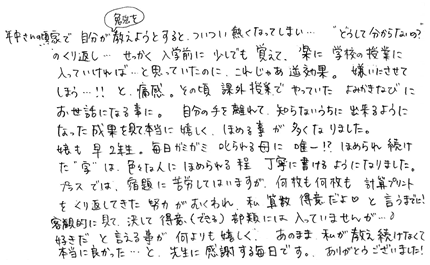 宿題を
年中さんの頃家で自分が教えようとすると、ついつい熱くなってしまい… "どうして分からないの?"
のくり返し… せっかく入学前に少しでも覚えて、楽に学校の授業に
入っていければ…と思っていたのに、これじゃあ逆効果。嫌いにさせて
しまう…!! と、痛感。その頃 課外授業でやっていた よみかきなびに
お世話になる事に。 自分の手を離れて、知らないうちに出来るように
なった成果を見て本当に嬉しく、ほめる事が多くなりました。
娘も早2年生。毎日ガミガミ 叱られる母に 唯一!? ほめられ続け
た"字"は、色々な人にほめられる程 丁寧に書けるようになりました。
プラスでは、宿題に苦労してはいますが、何枚も何枚も 計算プリント
をくり返してきた 努力がむくわれ、私 算数 得意だよ♡ と言うまでに!
客観的に見て、決して得意(できる)部類には入っていませんが…♪
好きだ と言える事が何よりも嬉しく、あのまま 私が教え続けなくて
本当に良かった…と、先生に感謝する毎日です。 ありがとうございました!